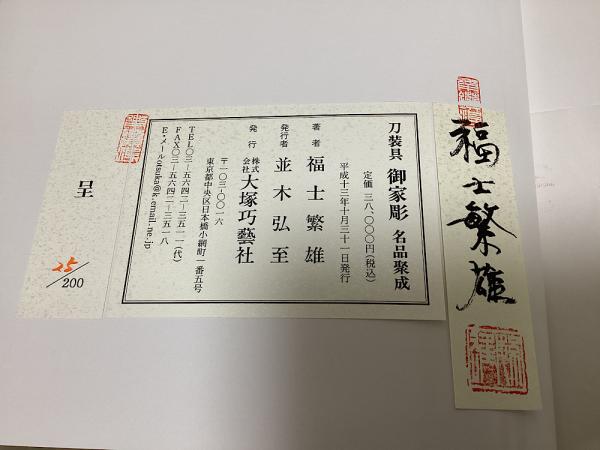 福士繁雄
刀装具 御家彫 名品聚成
定価 三八、〇〇〇円(税込)
平成十三年十月三十一日発行
著者 福士繁雄
発行者 並木弘至
発行 株式会社 大塚巧藝社
〒一〇三-〇〇一六
東京都中央区日本橋小網町一番五号
TEL〇三-五六四二-三五一一(代)
FAX〇三-五六四二-三五一八
E・メールotsuka@k.email.ne.jp
呈
25/200